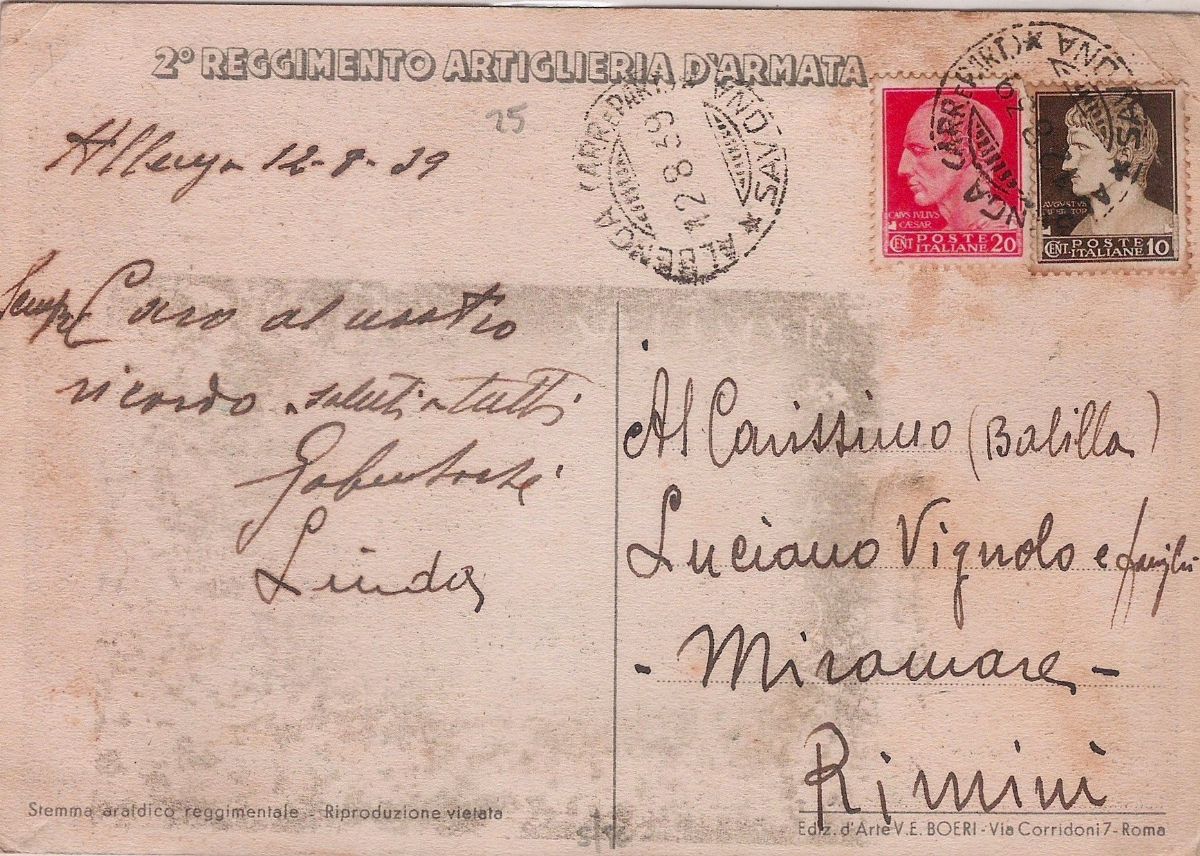 2º REGGIMENTO ARTIGLIERIA D'ARMATA
25
12-8-39
ALBENGA CARR E PARTI * SAVONA *
12 8 39
CAIVS IVLIVS
CAESAR
CENT POSTE ITALIANE 20
AVGVSTVS
CENT POSTE ITALIANE 10
Sempre Caro al nostro
ricordo saluti a tutti
Linda
Al Carissimo (Balilla)
Luciano Vignolo e
- Miramare -
Rimini
Stemma araldico reggimentale - Riproduzione vietata
Ediz. d'Arte V. E. BOERI - Via Corridoni 7 - Roma